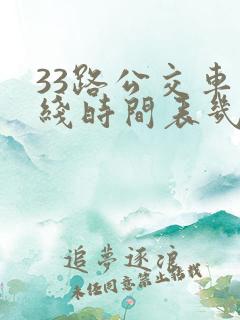 33路公交車
綫時間表幾
追夢逐浪
未经同意禁止转载